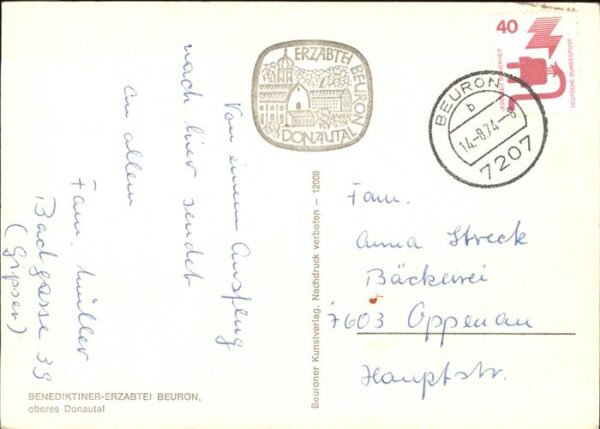 ERZABTEI BEURON
DONAUTAL
40
DEUTSCHE BUNDESPOST
BEURON
b
14.-8.74-8
7207
Von einem Ausflug
nach hier sendet
an allem
Fam. Müller
Bachgasse 39
(Gipser)
Beuroner Kunstverlag. Nachdruck verboten – 12008
Fam.
Anna Streck
Bäckerei
7603 Oppenau
Hauptstr.
BENEDIKTINER-ERZABTEI BEURON,
oberes Donautal